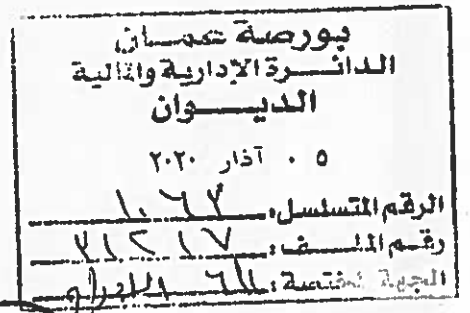 بورصة عمان
الدائرة الإدارية والمالية
الديوان
٠٥ آذار ٢٠٢٠
الرقم المتسلسل: ١٠٦٢
رقم الملف: ٣١٢١٧
الجهة المختصة: